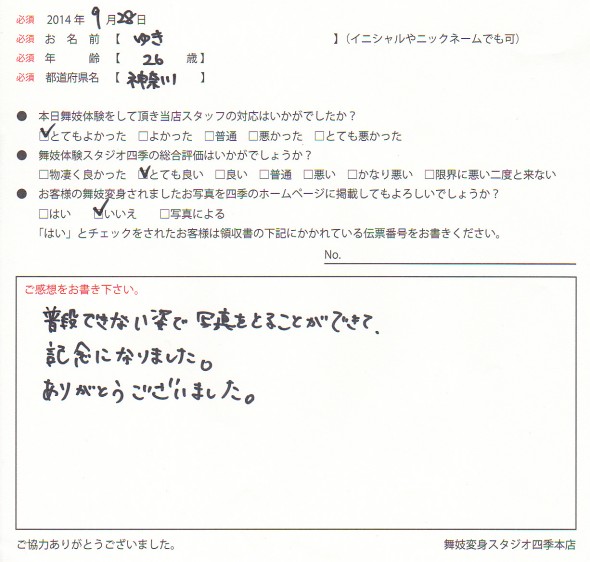 必須 2014年 9月28日
必須 お名前【 ゆき 】(イニシャルやニックネームでも可)
必須 年齢【 26 歳】
必須 都道府県名【 神奈川 】
● 本日舞妓体験をして頂き当店スタッフの対応はいかがでしたか?
☑とてもよかった □よかった □普通 □悪かった □とても悪かった
● 舞妓体験スタジオ四季の総合評価はいかがでしょうか?
□物凄く良かった ☑とても良い □良い □普通 □悪い □かなり悪い □限界に悪い二度と来ない
● お客様の舞妓変身されましたお写真を四季のホームページに掲載してもよろしいでしょうか?
□はい ☑いいえ □写真による
「はい」とチェックをされたお客様は領収書の下記にかかれている伝票番号をお書きください。
No.
ご感想をお書き下さい。
普段できない姿で写真をとることができて、
記念になりました。
ありがとうございました。
ご協力ありがとうございました。 舞妓変身スタジオ四季本店